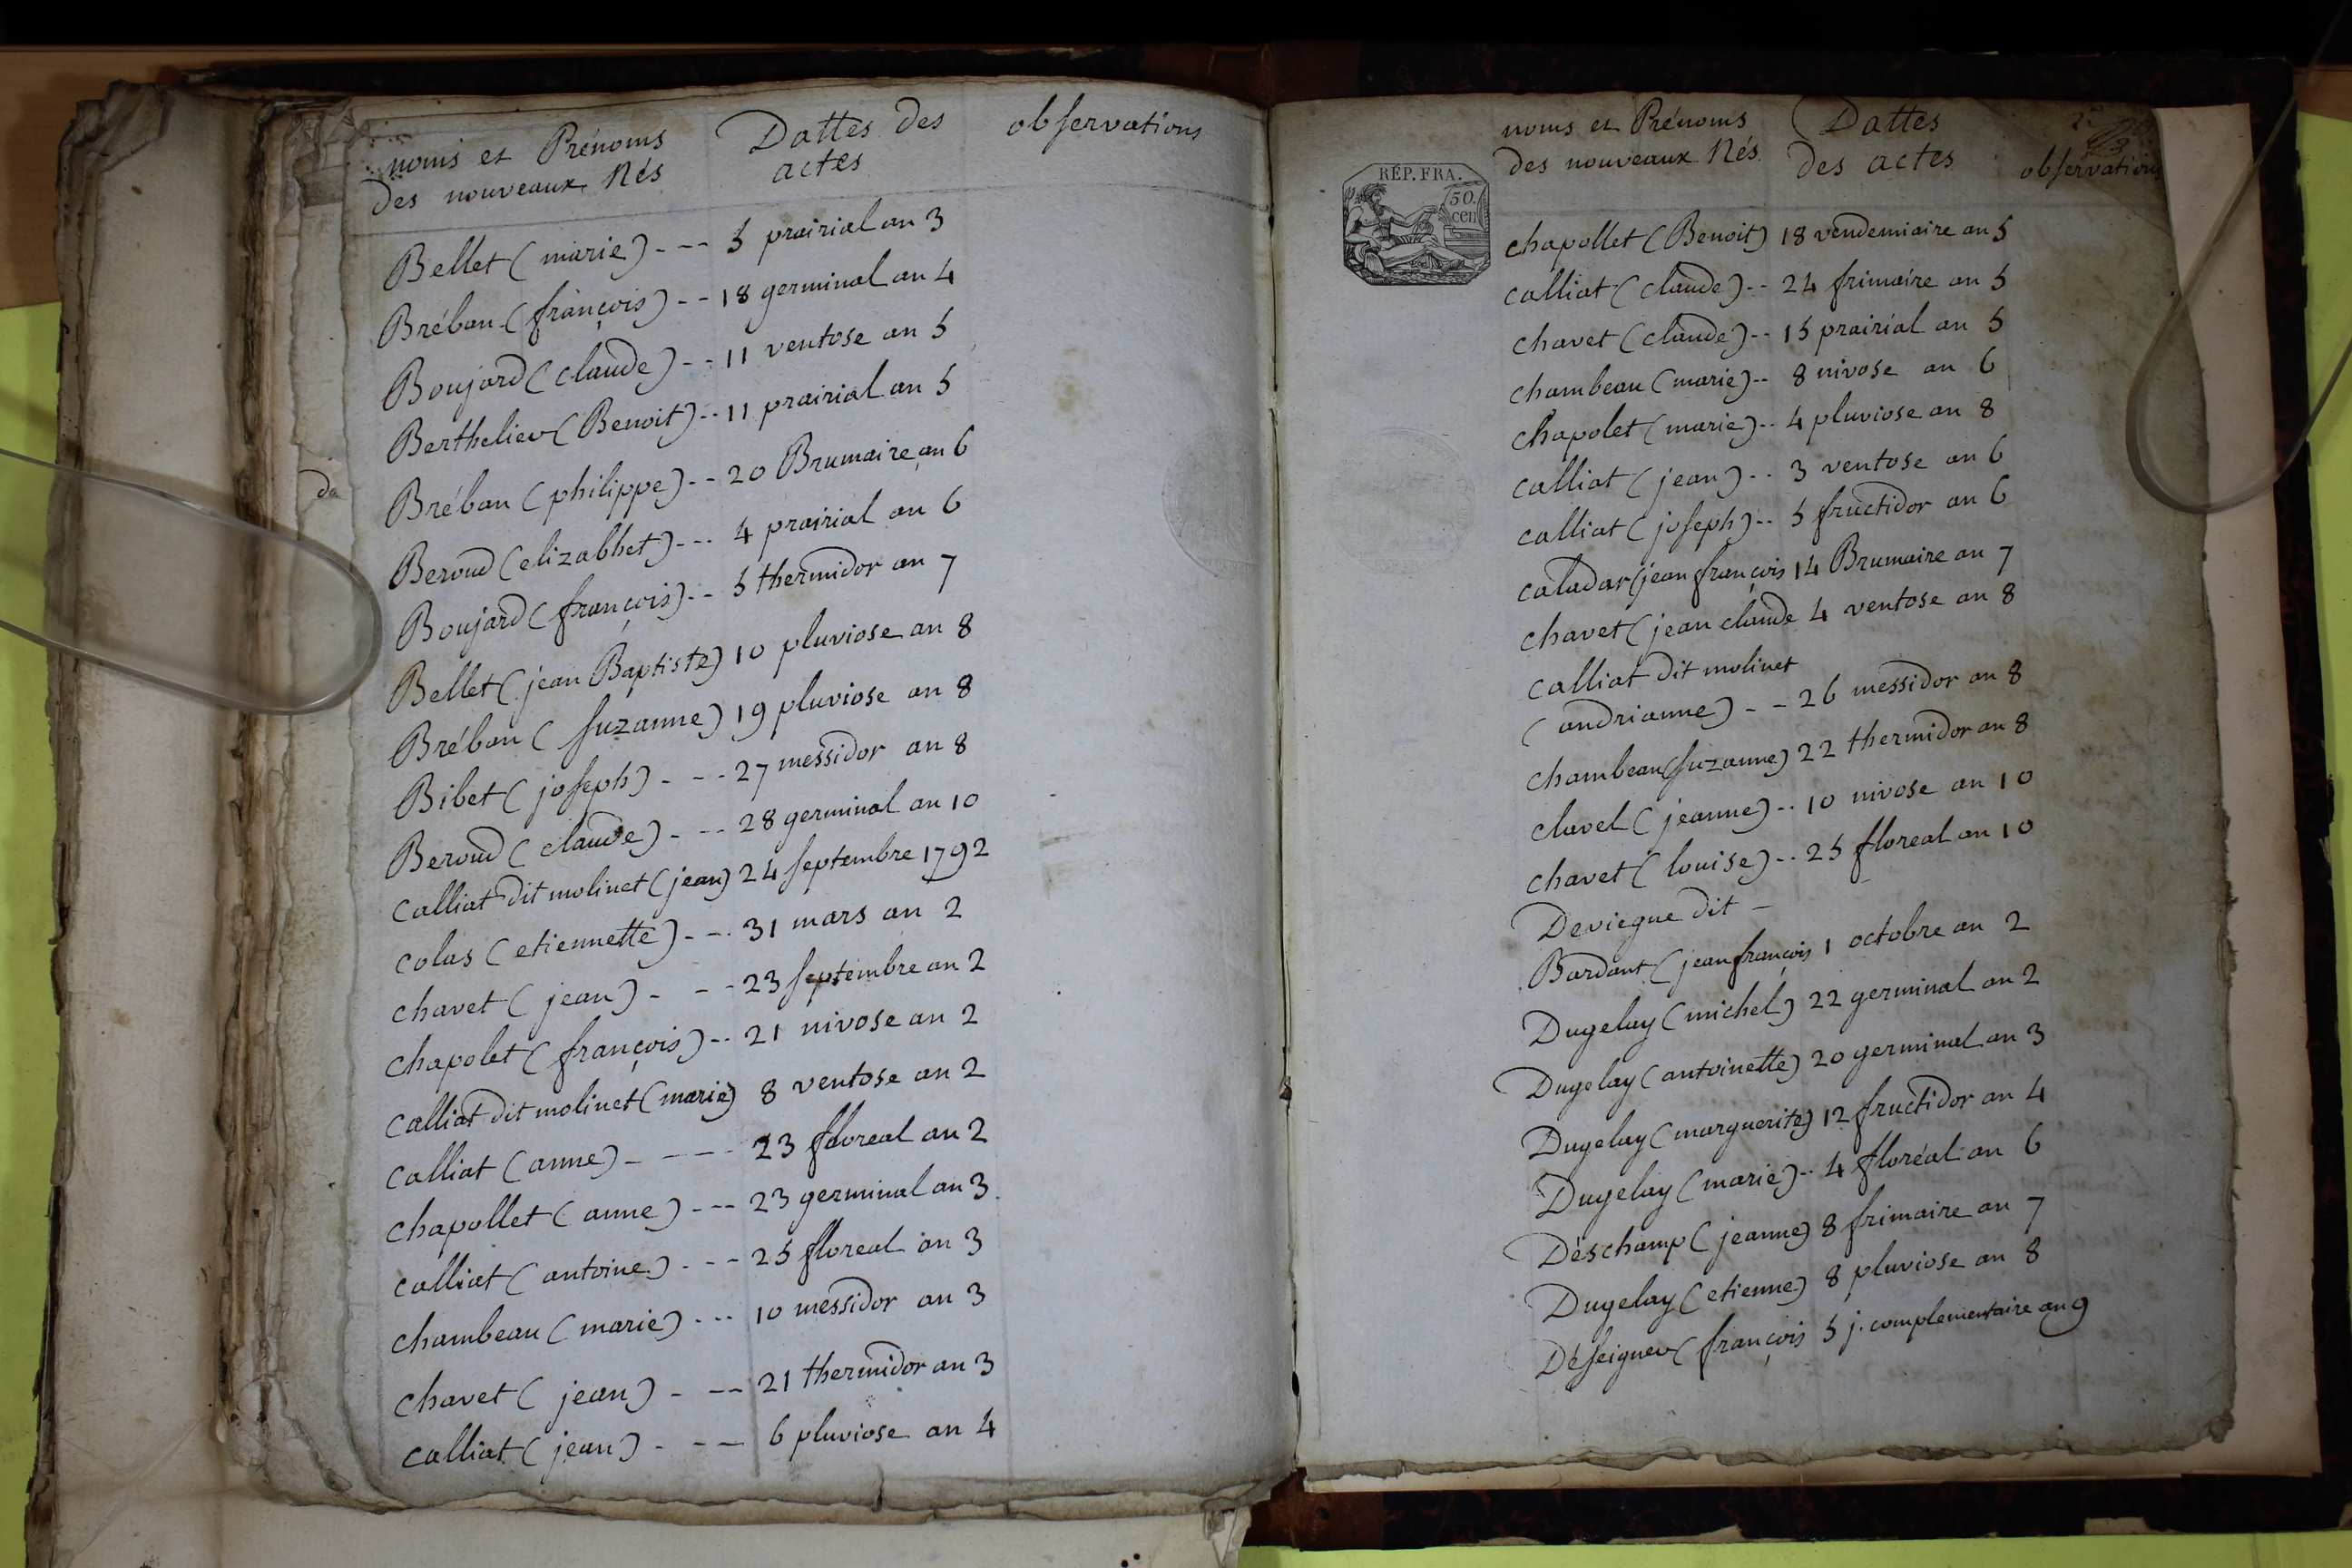 noms et Prénoms
des nouveaux Nés
Dattes des
actes
observations
Bellet (marie) - -- 5 prairial an 3
Bréban (françois) - - 18 germinal an 4
Boujard (claude) - - 11 ventose an 5
Berthelier (Benoit) - - 11 prairial an 5
Bréban (philippe) - - 20 Brumaire an 6
Beroud (elizabhet) - - - 4 prairial an 6
Boujard (françois) - - 5 thermidor an 7
Bellet (jean Baptiste) 10 pluviose an 8
Bréban (suzanne) 19 pluviose an 8
Bibet (joseph) - - - 27 messidor an 8
Beroud (claude) - - - 28 germinal an 10
calliat dit molinet (jean) 24 septembre 1792
colas (etiennette) - - - 31 mars an 2
chavet (jean) - - - 23 septembre an 2
chapolet (françois) - - 21 nivose an 2
calliat dit molinet (marie) 8 ventose an 2
calliat (anne) - - - - 23 floreal an 2
chapollet (anne) - - - 23 germinal an 3
calliat (antoine) - - - 25 floreal an 3
chambeau (marie) - - - 10 messidor an 3
chavet (jean) - - - 21 thermidor an 3
calliat (jean) - - - 6 pluviose an 4
da
RÉP. FRA.
50.
cen
noms et Prénoms
des nouveaux Nés
Dattes
des actes
observations
chapollet (Benoit) 18 vendemiaire an 5
calliat (claude) - - 24 frimaire an 5
chavet (claude) - - 15 prairial an 5
chambeau (marie) - - 8 nivose an 6
chapolet (marie) - - 4 pluviose an 8
calliat (jean) - - 3 ventose an 6
calliat (joseph) - - 5 fructidor an 6
caladar (jean françois 14 Brumaire an 7
chavet (jean claude 4 ventose an 8
calliat dit molinet
(andrianne) - - 26 messidor an 8
chambeau (suzanne) 22 thermidor an 8
clavel (jeanne) - - 10 nivose an 10
chavet (louise) - - 25 floreal an 10
Deviegue dit -
Bardant (jean françois 1 octobre an 2
Dugelay (michel) 22 germinal an 2
Dugelay (antoinette) 20 germinal an 3
Dugelay (marguerite) 12 fructidor an 4
Dugelay (marie) - - 4 floréal an 6
Déschamp (jeanne) 8 frimaire an 7
Dugelay (etienne) 8 pluviose an 8
Déseigner (françois 5 j. complementaire an 9